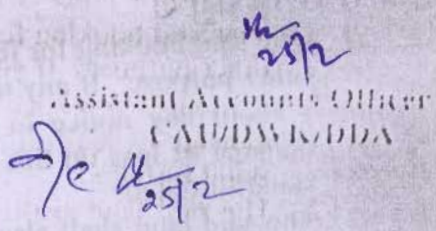 25/2
Assistant Accounts Officer
CAU/DWK/DDA
25/2